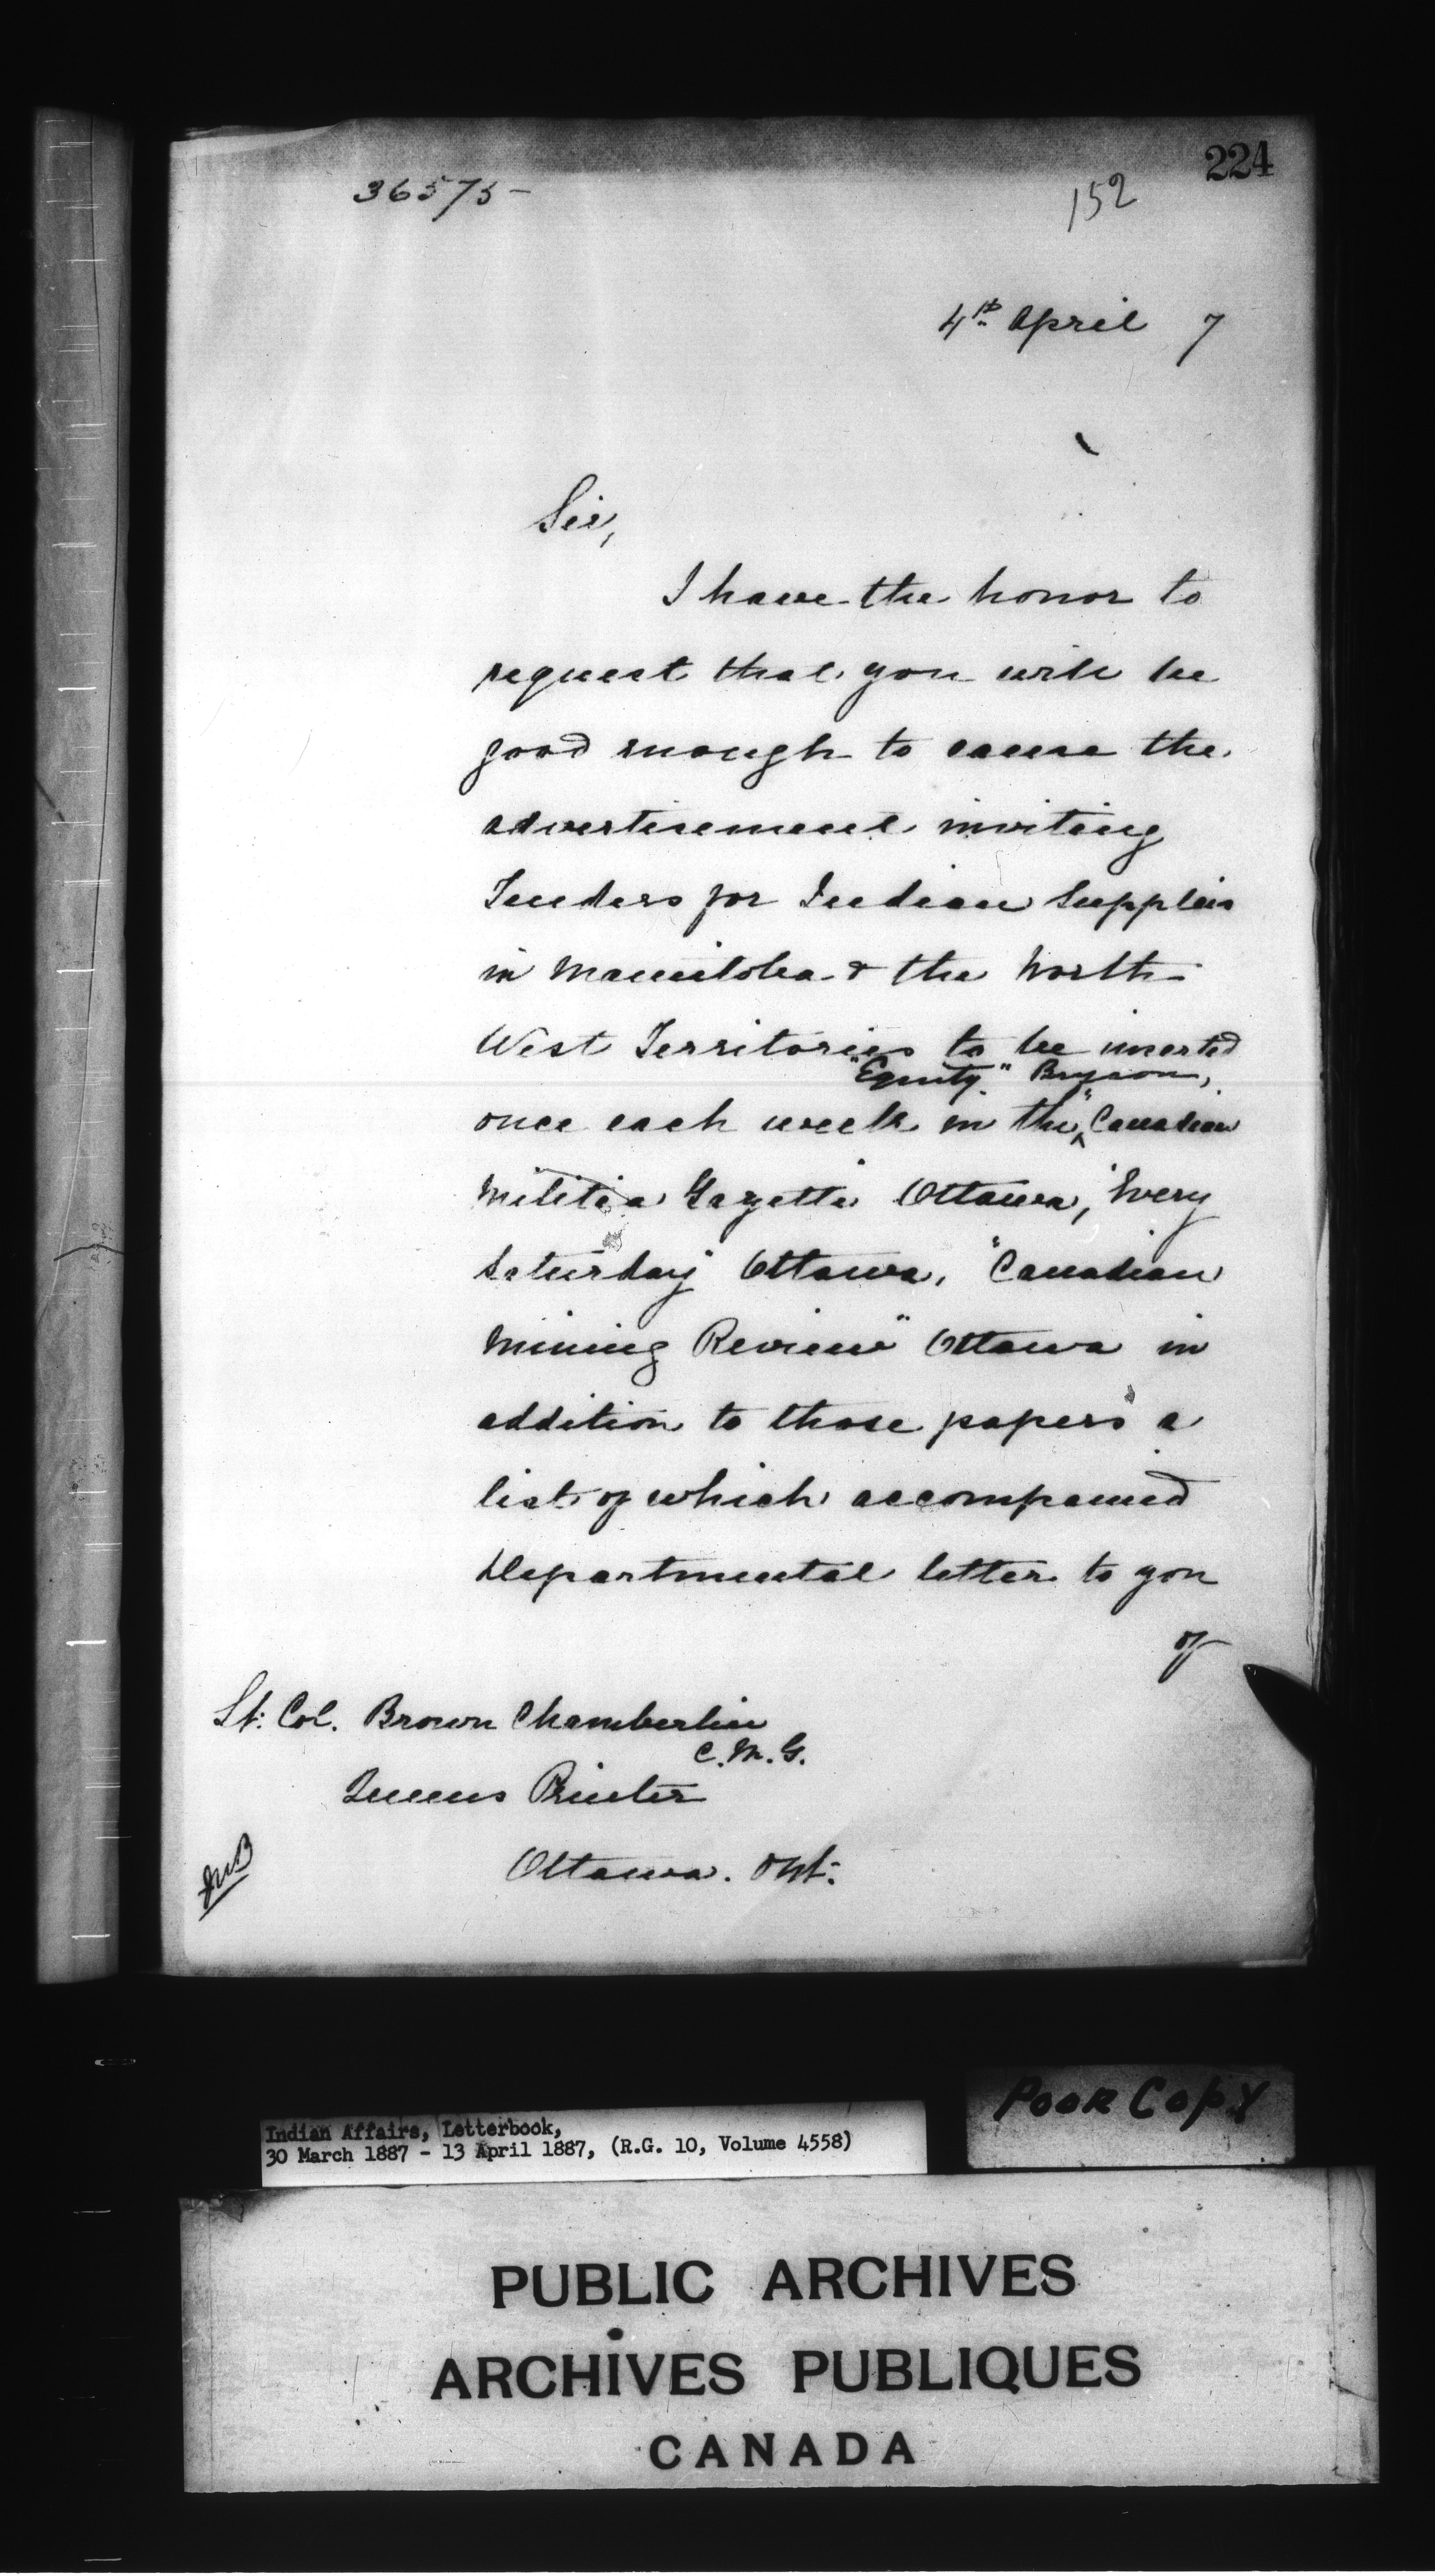 224
36575
152
4th April 7
Sir,
I have the honor to
request that you will be
good enough to cause the
advertisement inviting
Tenders for Indian Supplies
in Manitoba & the North
West Territories to be inserted
"Equity" Bryson,
once each week in the "Canadian
Militia Gazette Ottawa, "Every
Saturday" Ottawa, "Canadian
Mining Review" Ottawa in
addition to those papers a
list of which accompanied
Departmental letter to you
of
Lt. Col. Brown Chamberlin
C.M.G.
Queens Printer
Ottawa. Ont:
POOR COPY
Indian Affairs, Letterbook,
30 March 1887 - 13 April 1887, (R.G. 10, Volume 4558)
PUBLIC ARCHIVES
ARCHIVES PUBLIQUES
CANADA